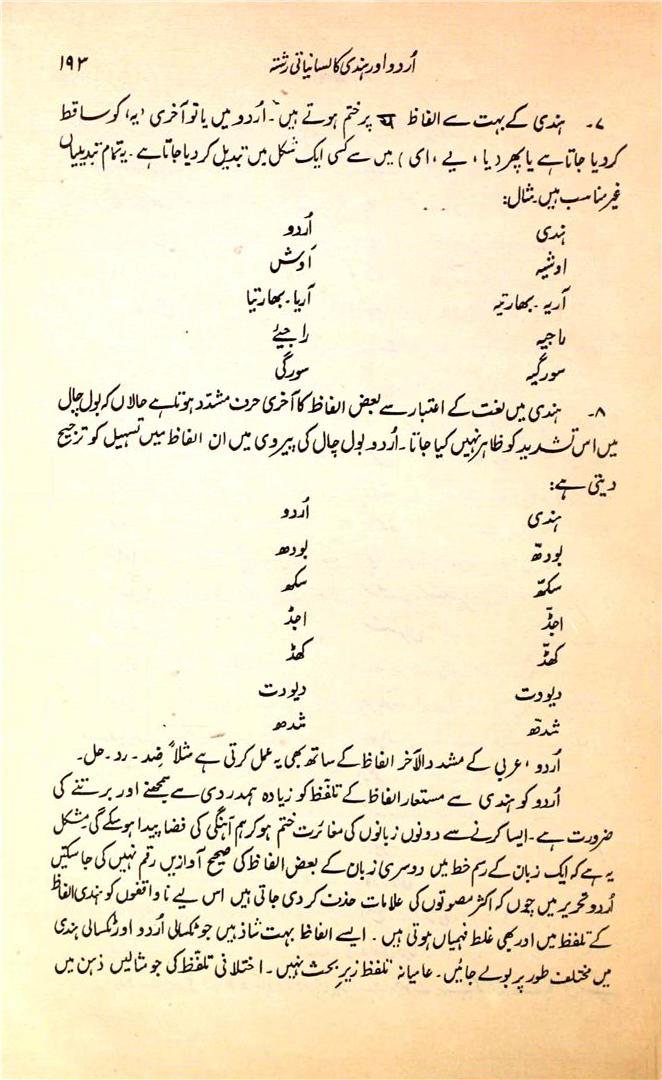 اُردو اور ہندی کا لسانیاتی رشتہ ۱۹۳
۷۔ ہندی کے بہت سے الفاظ य پر ختم ہوتے ہیں۔ اُردو میں یا تو آخری 'یہ' کو ساقط
کر دیا جاتا ہے یا پھر (یا، یے، ای) میں سے کسی ایک شکل میں تبدیل کر دیا جاتا ہے۔ یہ تمام تبدیلیاں
غیر مناسب ہیں۔ مثال:
ہندی اُردو
اوشیہ اوش
آریہ۔بھارتیہ آریا۔بھارتیا
راجیہ راجیئے
سورگیہ سورگی
۸۔ ہندی میں لغت کے اعتبار سے بعض الفاظ کا آخری حرف مشدد ہوتا ہے حالاں کہ بول چال
میں اس تشدید کو ظاہر نہیں کیا جاتا۔ اُردو بول چال کی پیروی میں ان الفاظ میں تسہیل کو ترجیح
دیتی ہے:
ہندی اُردو
بودھّ بودھ
سکھّ سکھ
اجڈّ اجڈ
کھڈّ کھڈ
دیودت دیودت
شدھّ شدھ
اُردو، عربی کے مشدد الآخر الفاظ کے ساتھ بھی یہ عمل کرتی ہے مثلاً ضد۔ رد۔ حل۔
اُردو کو ہندی سے مستعار الفاظ کے تلفظ کو زیادہ ہمدردی سے سمجھنے اور برتنے کی
ضرورت ہے۔ ایسا کرنے سے دونوں زبانوں کی مغائرت ختم ہو کر ہم آہنگی کی فضا پیدا ہو سکے گی۔ مشکل
یہ ہے کہ ایک زبان کے رسم خط میں دوسری زبان کے بعض الفاظ کی صحیح آوازیں رقم نہیں کی جا سکتیں
اُردو تحریر میں چوں کہ اکثر مصوتوں کی علامات حذف کر دی جاتی ہیں اس لیے ناواقفوں کو ہندی الفاظ
کے تلفظ میں اور بھی غلط فہمیاں ہوتی ہیں۔ ایسے الفاظ بہت شاذ ہیں جو ٹکسالی اُردو اور ٹکسالی ہندی
میں مختلف طور پر بولے جائیں۔ عامیانہ تلفظ زیرِ بحث نہیں۔ اختلافی تلفظ کی جو مثالیں ذہن میں